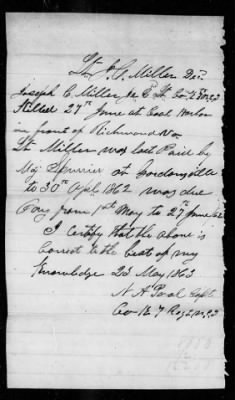 Lt J. C. Miller Decd
Joseph C. Miller Co E
Killed 27th June at Coal Harbor
in front of Richmond Va
Lt Miller was last Paid by
Maj at Gordonsville
to 30th April 1862 was due
Pay from 1st May to 27th June 62
I certify that the above is
Correct to the best of my
Knowledge 23 May 1863
N A Pool Capt
Co 7 Regt